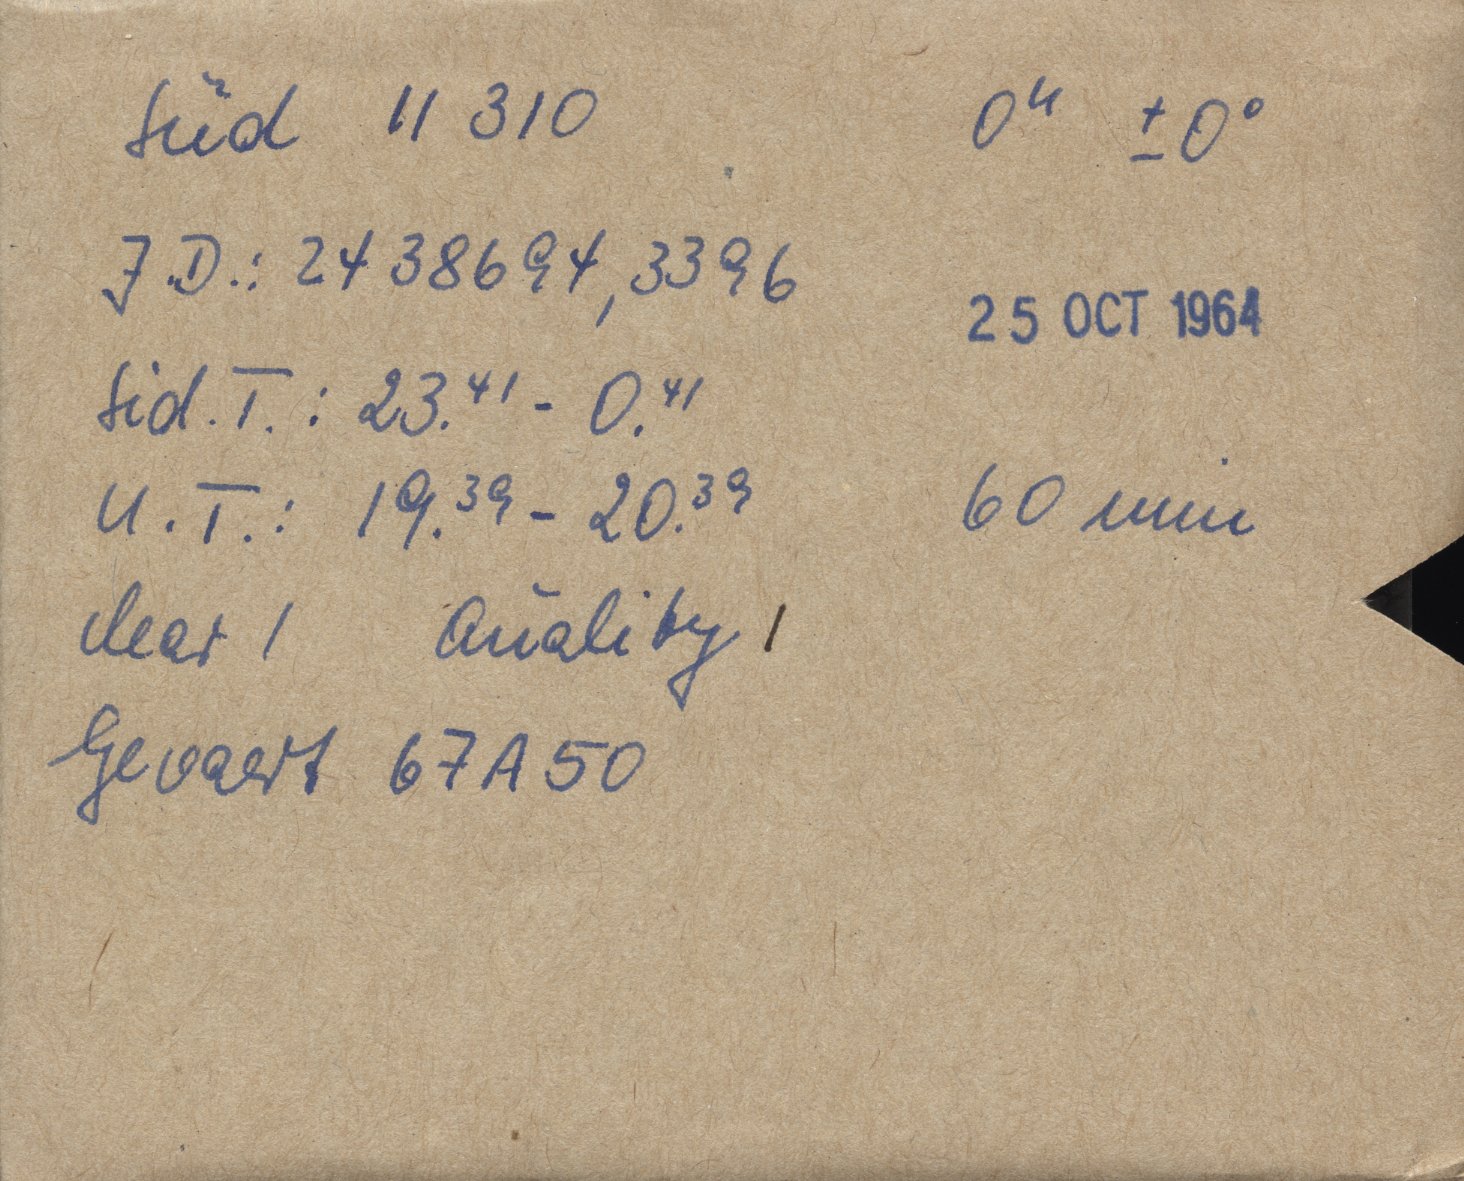 Süd 11 310 0ʰ ±0°
J.D.: 24 38694,3396
25 OCT 1964
Sid.T.: 23.⁴¹ - 0.⁴¹
U.T.: 19.³⁹ - 20.³⁹ 60 min
clear 1 Quality 1
Gevaert 67A50